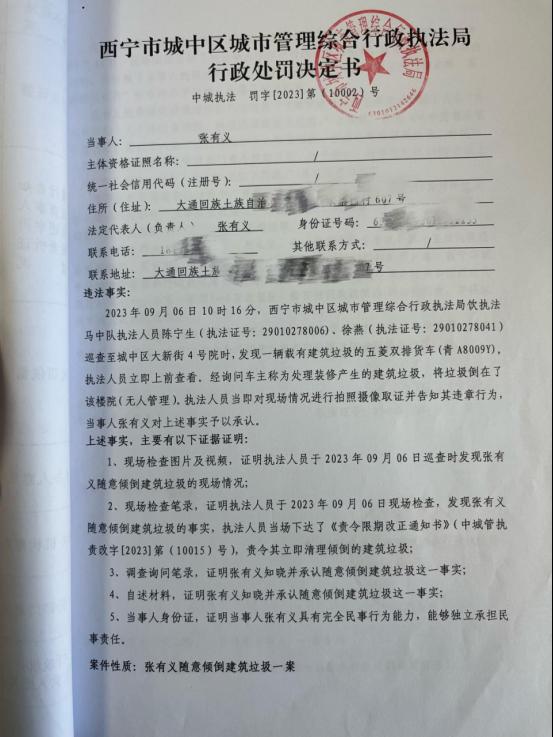 西宁市城中区城市管理综合行政执法局
行政处罚决定书
中城执法 罚字[2023]第(10002)号
当事人: 张有义
主体资格证照名称: /
统一社会信用代码(注册号): /
住所(住址): 大通回族土族自治 607号
法定代表人(负责人) 张有义 身份证号码: 6
联系电话: 其他联系方式: /
联系地址: 大通回族土族 号
违法事实:
2023年09月06日10时16分,西宁市城中区城市管理综合行政执法局饮执法
马中队执法人员陈宁生(执法证号:29010278006)、徐燕(执法证号:29010278041)
巡查至城中区大新街4号院时,发现一辆载有建筑垃圾的五菱双排货车(青A8009Y),
执法人员立即上前查看。经询问车主称为处理装修产生的建筑垃圾,将垃圾倒在了
该楼院(无人管理)。执法人员当即对现场情况进行拍照摄像取证并告知其违章行为,
当事人张有义对上述事实予以承认。
上述事实,主要有以下证据证明:
1、现场检查图片及视频,证明执法人员于2023年09月06日巡查时发现张有
义随意倾倒建筑垃圾的现场情况;
2、现场检查笔录,证明执法人员于2023年09月06日现场检查,发现张有义
随意倾倒建筑垃圾的事实,执法人员当场下达了《责令限期改正通知书》(中城管执
责改字[2023]第(10015)号),责令其立即清理倾倒的建筑垃圾;
3、调查询问笔录,证明张有义知晓并承认随意倾倒建筑垃圾这一事实;
4、自述材料,证明张有义知晓并承认随意倾倒建筑垃圾这一事实;
5、当事人身份证,证明当事人张有义具有完全民事行为能力,能够独立承担民
事责任。
案件性质:张有义随意倾倒建筑垃圾一案